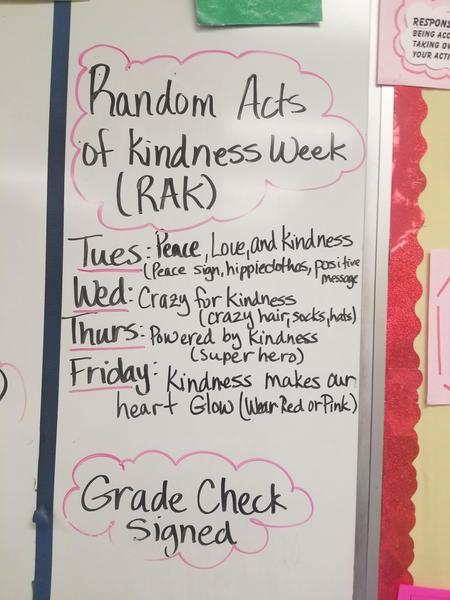 Random Acts
of Kindness Week
(RAK)
Tues: Peace, Love, and Kindness
(Peace sign, hippieclothos, positive
message
Wed: Crazy for Kindness
(crazy hair, socks, hats)
Thurs: Powered by Kindness
(super hero)
Friday: Kindness makes our
heart Glow (Wear Red or Pink)
Grade Check
Signed
RESPONS
BEING ACC
TAKING OW
YOUR ACTI